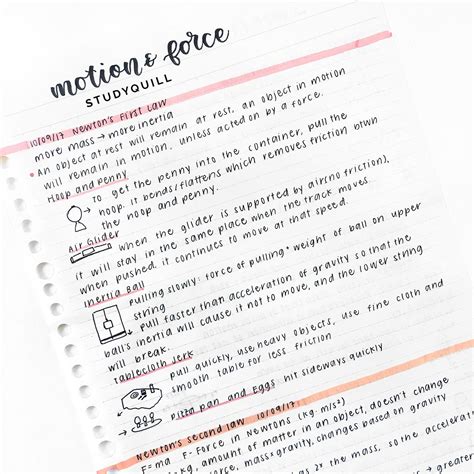 motion & force
STUDYQUILL
10/09/17 Newton's First Law
more mass → more inertia
• An object at rest will remain at rest, an object in motion
will remain in motion, unless acted on by a force.
Hoop and Penny
→ To get the penny into the container, pull the
hoop. it bends/flattens which removes friction btwn
the hoop and penny.
Air Glider
when the glider is supported by air(no friction),
it will stay in the same place when the track moves.
when pushed, it continues to move at that speed.
Inertia Ball
pulling slowly: force of pulling + weight of ball on upper
string
pull faster than acceleration of gravity so that the
ball's inertia will cause it not to move, and the lower string
will break.
Tablecloth Jerk
pull quickly, use heavy objects, use fine cloth and
smooth table for less friction
Pizza pan and Eggs: hit sideways quickly
Newton's second law 10/09/17
F=ma F-Force in Newtons (kg·m/s²)
kg), amount of matter in an object, doesn't change
mass × gravity, changes based on gravity
as the mass, so the accelera